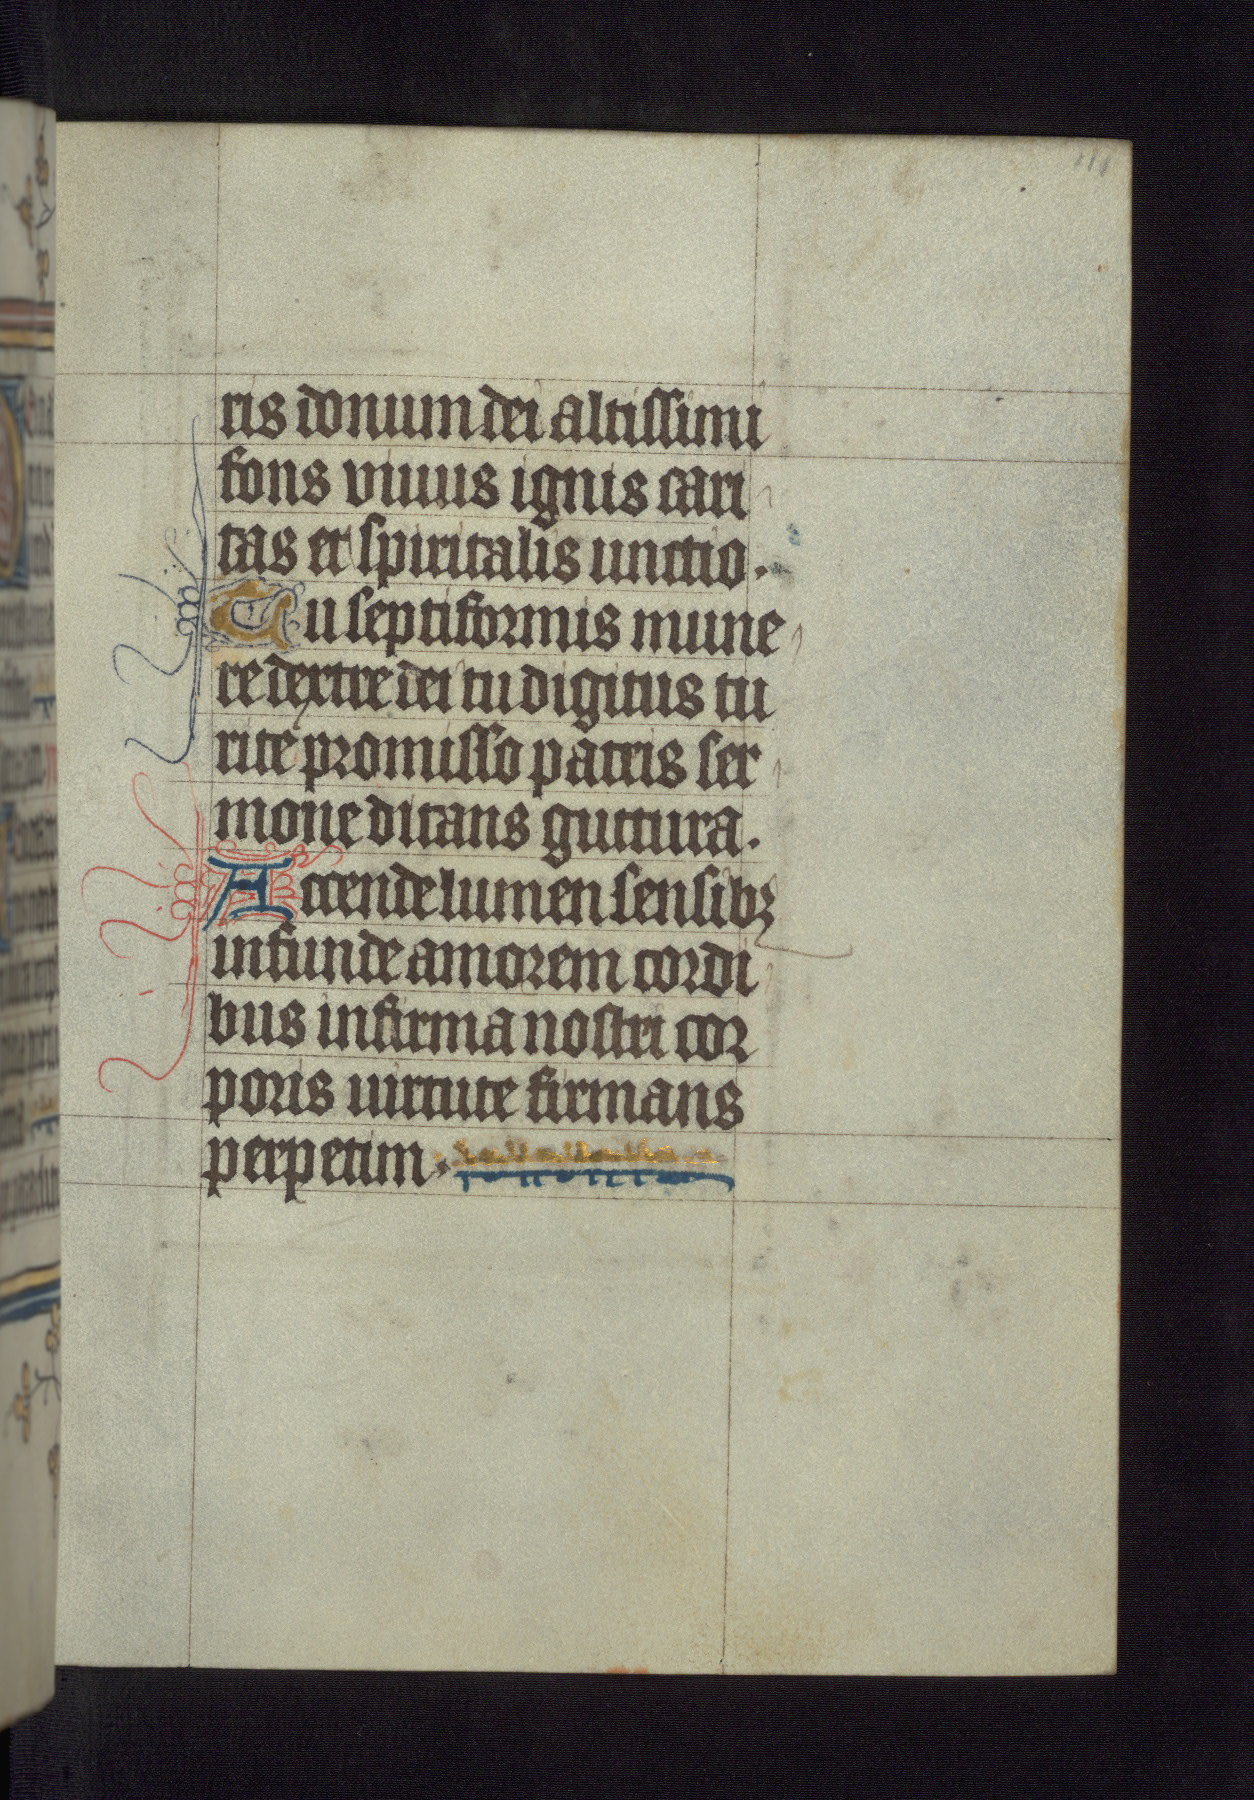 ris donum dei altissimi
fons viuus ignis cari
tas et spiritalis unctio.
Tu septiformis mune
re dextre dei tu digitus tu
rite promisso patris ser
mone ditans guttura.
Accende lumen sensibꝫ
infunde amorem cordi
bus infirma nostri cor
poris uirtute firmans
perpetim.